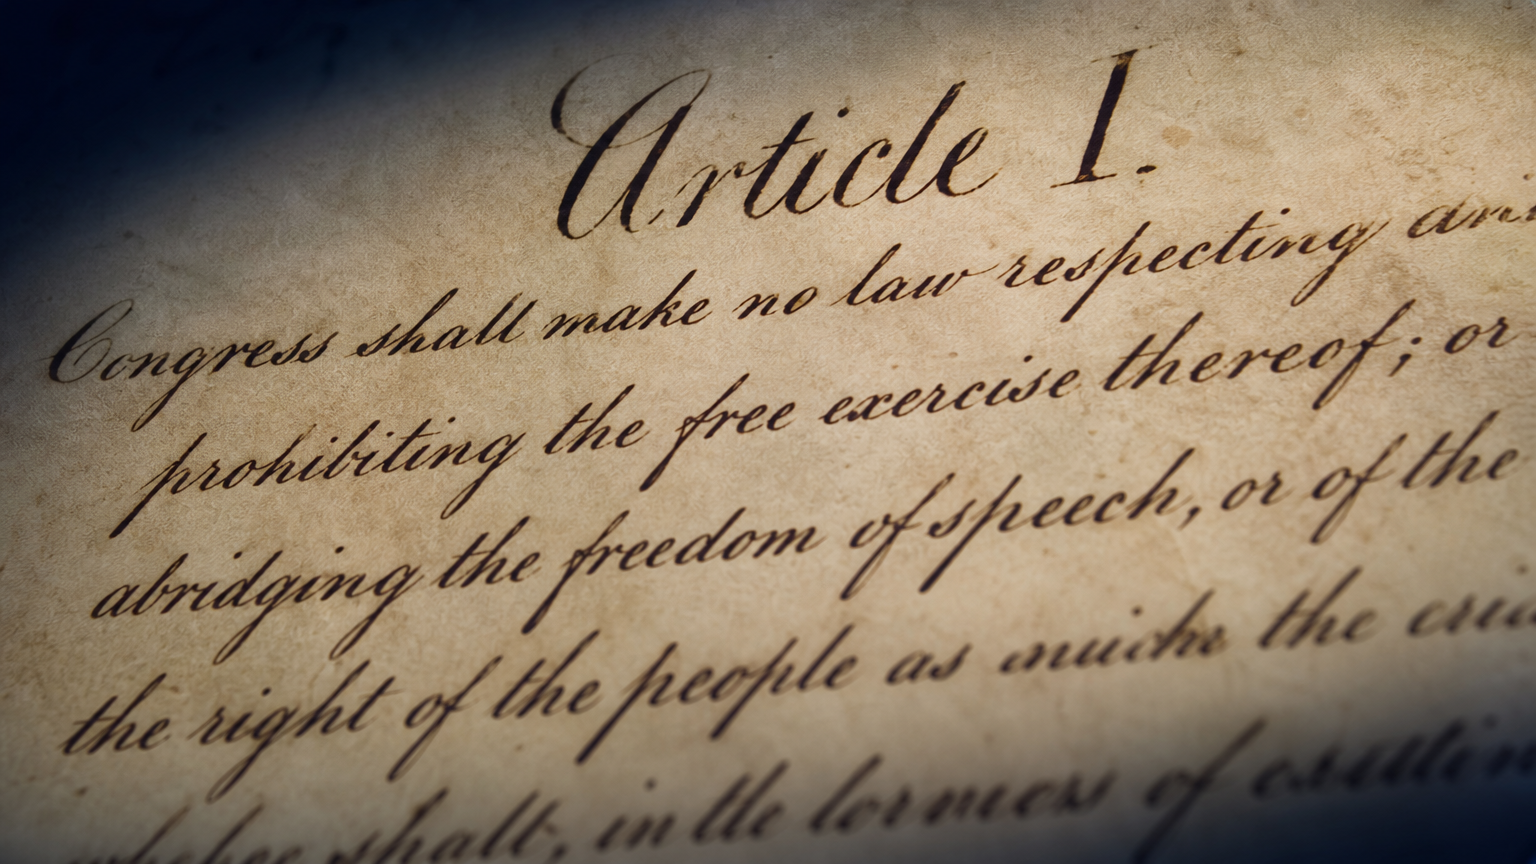 Article I.
Congress shall make no law respecting
prohibiting the free exercise thereof; or
abridging the freedom of speech, or of the
the right of the people as the
shall, in of